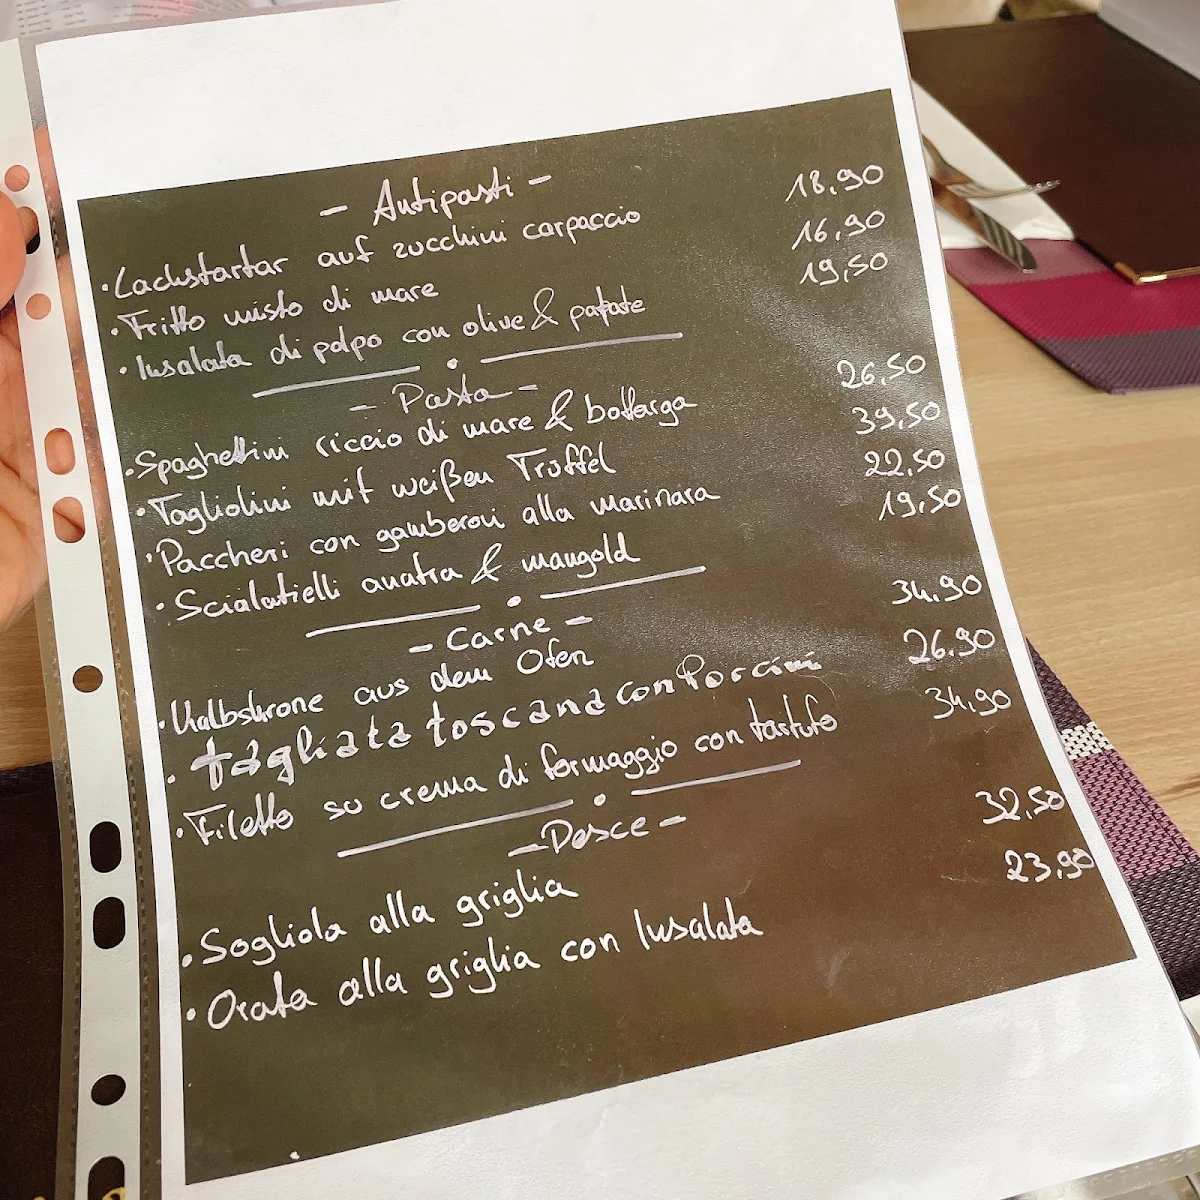 - Antipasti -
• Lachstartar auf zucchini carpaccio 18,90
• Fritto misto di mare 16,90
• Insalata di polpo con olive & patate 19,50
- Pasta -
• Spaghettini riccio di mare & bottarga 26,50
• Tagliolini mit weißen Trüffel 39,50
• Paccheri con gamberoni alla marinara 22,50
• Scialatielli anatra & mangold 19,50
- Carne -
• Kalbskrone aus dem Ofen 34,90
• tagliata toscana con Porcini 26,90
• Filetto su crema di formaggio con tartufo 34,90
- Pesce -
• Sogliola alla griglia 32,50
• Orata alla griglia con Insalata 23,90